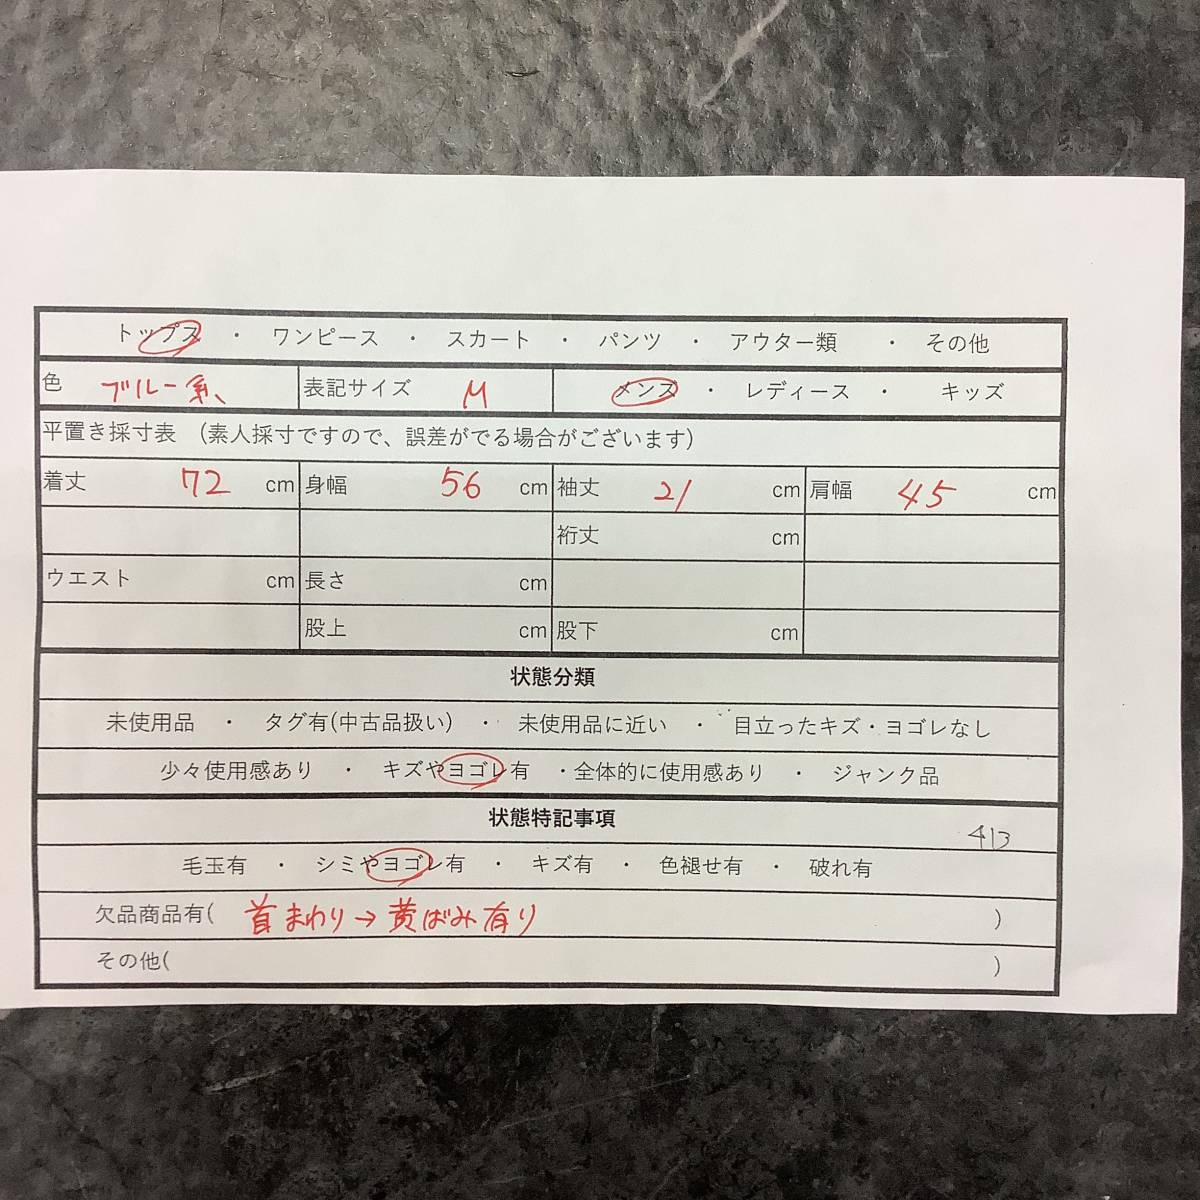 トップス ・ ワンピース ・ スカート ・ パンツ ・ アウター類 ・ その他
色 ブルー系、 表記サイズ M メンズ ・ レディース ・ キッズ
平置き採寸表 (素人採寸ですので、誤差がでる場合がございます)
着丈 72 cm 身幅 56 cm 袖丈 21 cm 肩幅 45 cm
裄丈 cm
ウエスト cm 長さ cm
股上 cm 股下 cm
状態分類
未使用品 ・ タグ有(中古品扱い) ・ 未使用品に近い ・ 目立ったキズ・ヨゴレなし
少々使用感あり ・ キズやヨゴレ有 ・全体的に使用感あり ・ ジャンク品
状態特記事項
413
毛玉有 ・ シミやヨゴレ有 ・ キズ有 ・ 色褪せ有 ・ 破れ有
欠品商品有( 首まわり→黄ばみ有り )
その他( )